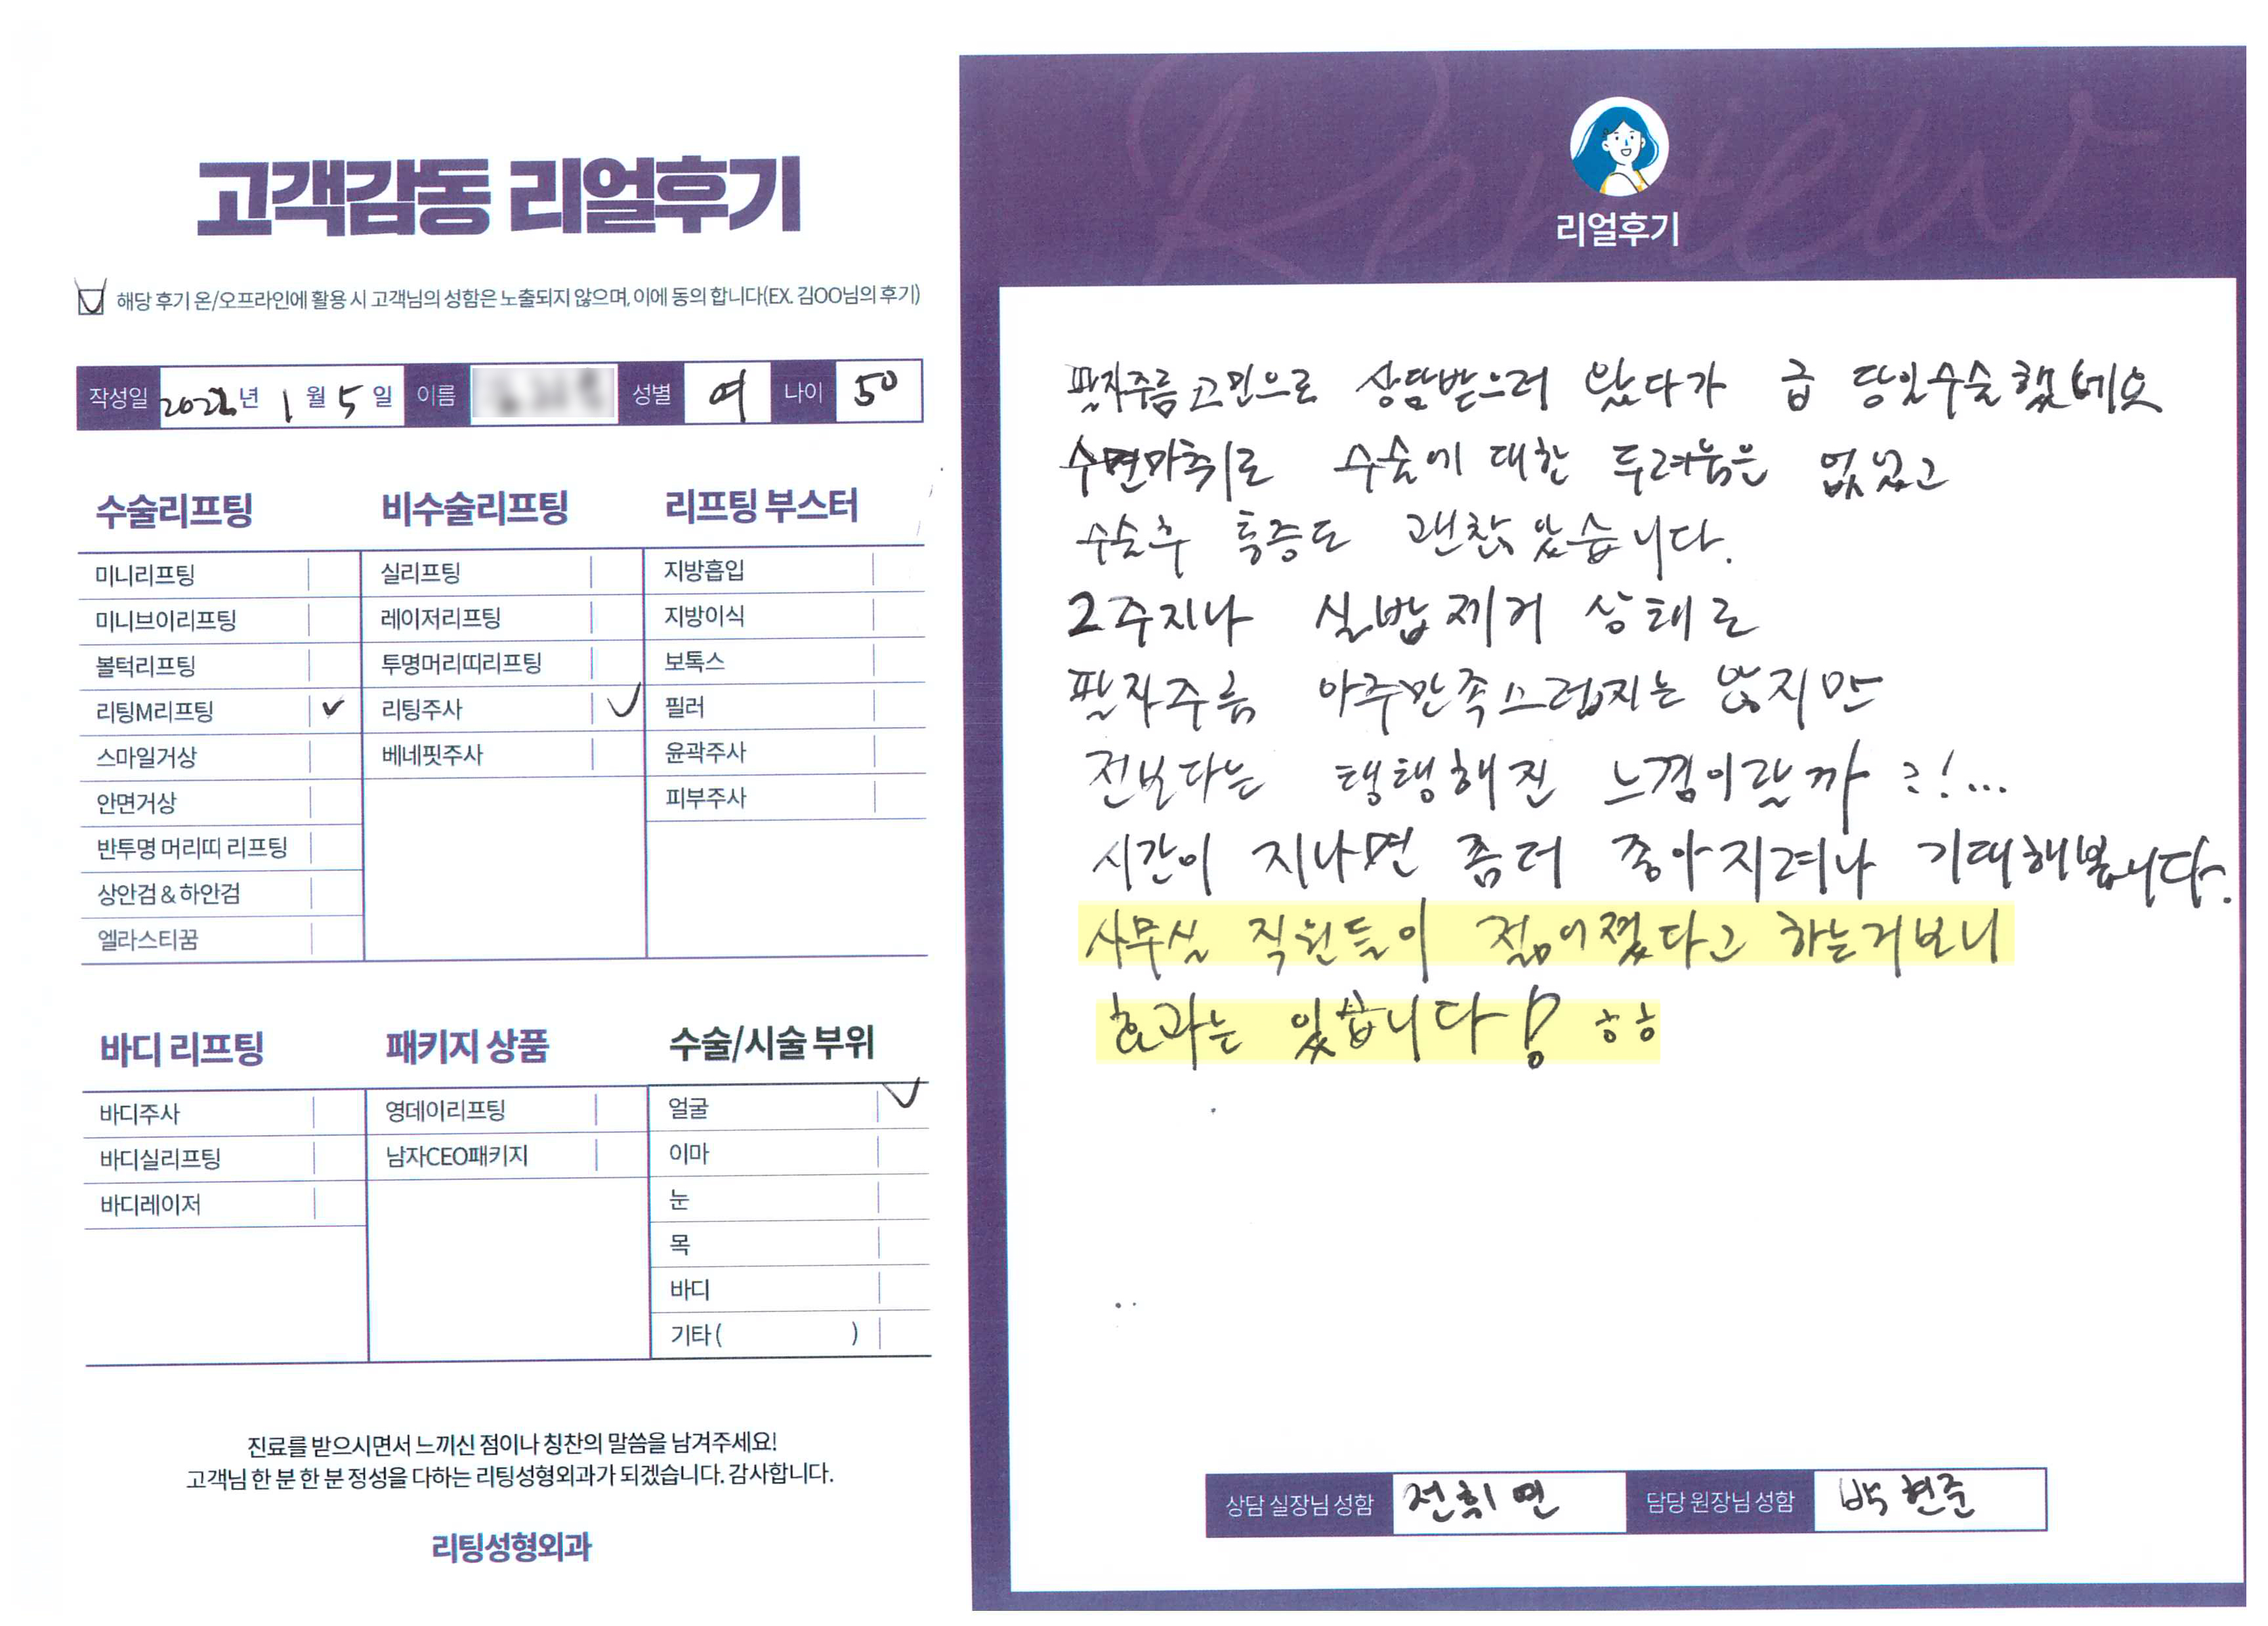 고객감동 리얼후기
해당 후기 온/오프라인에 활용 시 고객님의 성함은 노출되지 않으며, 이에 동의 합니다(EX. 김OO님의 후기)
작성일 2022년 1월 5일 이름 성별 여 나이 50
수술리프팅
미니리프팅
미니브이리프팅
볼턱리프팅
리팅M리프팅
스마일거상
안면거상
반투명 머리띠 리프팅
상안검 & 하안검
엘라스티꿈
비수술리프팅
실리프팅
레이저리프팅
투명머리띠리프팅
리팅주사
베네핏주사
리프팅 부스터
지방흡입
지방이식
보톡스
필러
윤곽주사
피부주사
바디 리프팅
바디주사
바디실리프팅
바디레이저
패키지 상품
영데이리프팅
남자CEO패키지
수술/시술 부위
얼굴
이마
눈
목
바디
기타 ( )
진료를 받으시면서 느끼신 점이나 칭찬의 말씀을 남겨주세요!
고객님 한 분 한 분 정성을 다하는 리팅성형외과가 되겠습니다. 감사합니다.
리팅성형외과
Review
리얼후기
팔자주름 고민으로 상담받으러 왔다가 급 당일수술했네요
수면마취로 수술에 대한 두려움은 없었고
수술후 통증도 괜찮았습니다.
2주지나 실밥제거 상태로
팔자주름 아주만족스럽지는 않지만
전보다는 탱탱해진 느낌이랄까 ?!...
시간이 지나면 좀더 좋아지려나 기대해봅니다.
사무실 직원들이 젊어졌다고 하는거보니
효과는 있습니다! ㅎㅎ
상담 실장님 성함 전휘연 담당 원장님 성함 박현준